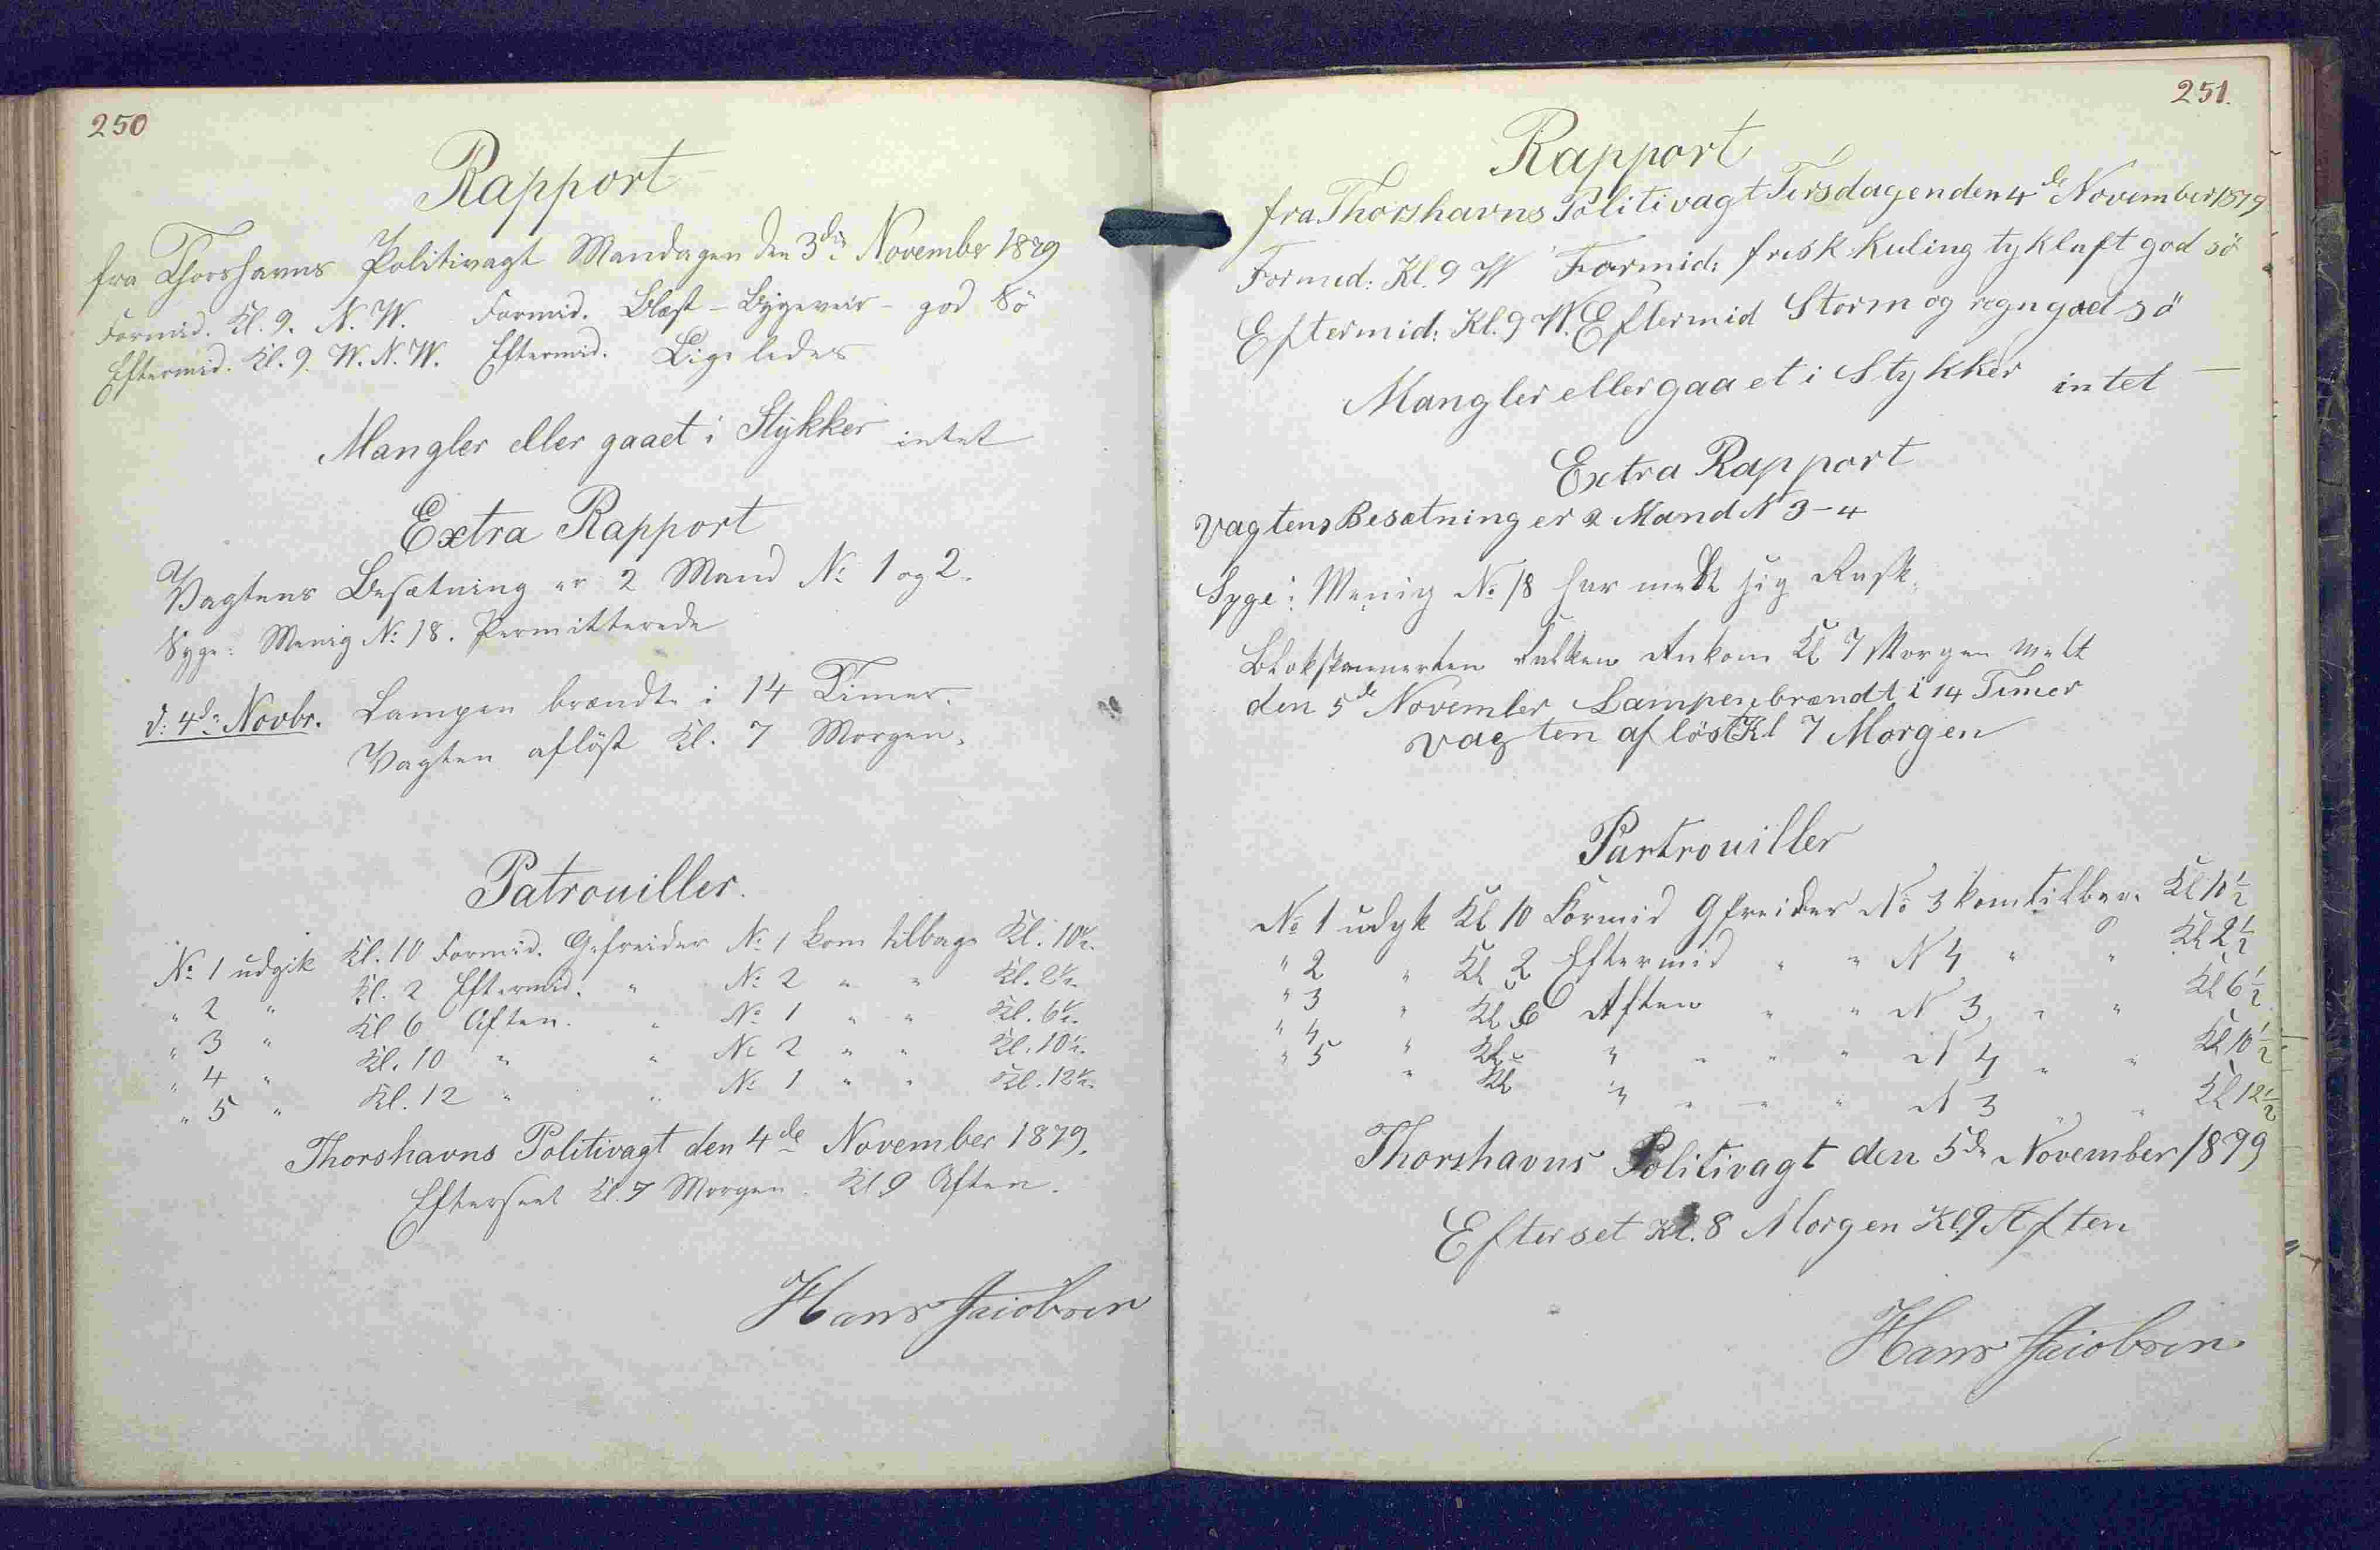 250
Rapport
fra Thorshavns Politivagt Mandagen den 3die November 1879
Formid. Kl. 9. N. W. Formid. Blæst - Bygeveir - god Sö
Eftermid. Kl. 9. W. N. W. Eftermid. Ligeledes
Mangler eller gaaet i Stykker intet
Extra Rapport
Vagtens Besætning er 2 Mand No 1 og 2.
Syge: Menig No 18. Permitterede
d: 4de Novbr. Lampen brændte i 14 Timer.
Vagten aflöst Kl. 7 Morgen.
Patrouiller.
No 1 udgik Kl. 10 Formid. Gefreider No 1 kom tilbage Kl. 10½.
" 2 " Kl. 2 Eftermid. " No 2 " " Kl. 2½.
" 3 " Kl 6 Aften. " No 1 " " Kl. 6½.
" 4 " Kl. 10 " " No 2 " " Kl. 10½.
" 5 " Kl. 12 " " No 1 " " Kl. 12½.
Thorshavns Politivagt den 4de November 1879.
Efterseet Kl. 7 Morgen. Kl 9 Aften.
Hans Jacobsen
251.
Rapport
fra Thorshavns Politivagt Tirsdagen den 4de November 1879
Formid: Kl. 9 W Formid: frisk Kuling tykluft god sö
Eftermid: Kl. 9 W. Eftermid Storm og regn god sö
Mangler eller gaaet i Stykker intet
Extra Rapport
Vagtens Besætning er 2 Mand N 3 - 4
Syge: Menig No 18 har meldt sig Rask.
Falken Ankom Kl 7 Morgen
den 5de November Lampen brændt i 14 Timer
Vagten aflöst Kl 7 Morgen
Partrouiller
No 1 udgk Kl 10 Formid Gfreider No 3 kom tilbage Kl 10½
" 2 " Kl 2 Eftermid " " N 4 " " Kl 2½
" 3 " Kl 6 Aften " " N 3 " " Kl 6½
" 4 " Kl " " " " N 4 " " Kl 10½
" 5 " Kl " " " " N 3 " " Kl 12½
Thorshavns Politivagt den 5de November 1879
Efterset Kl. 8 Morgen Kl 9 Aften
Hans Jacobsen.